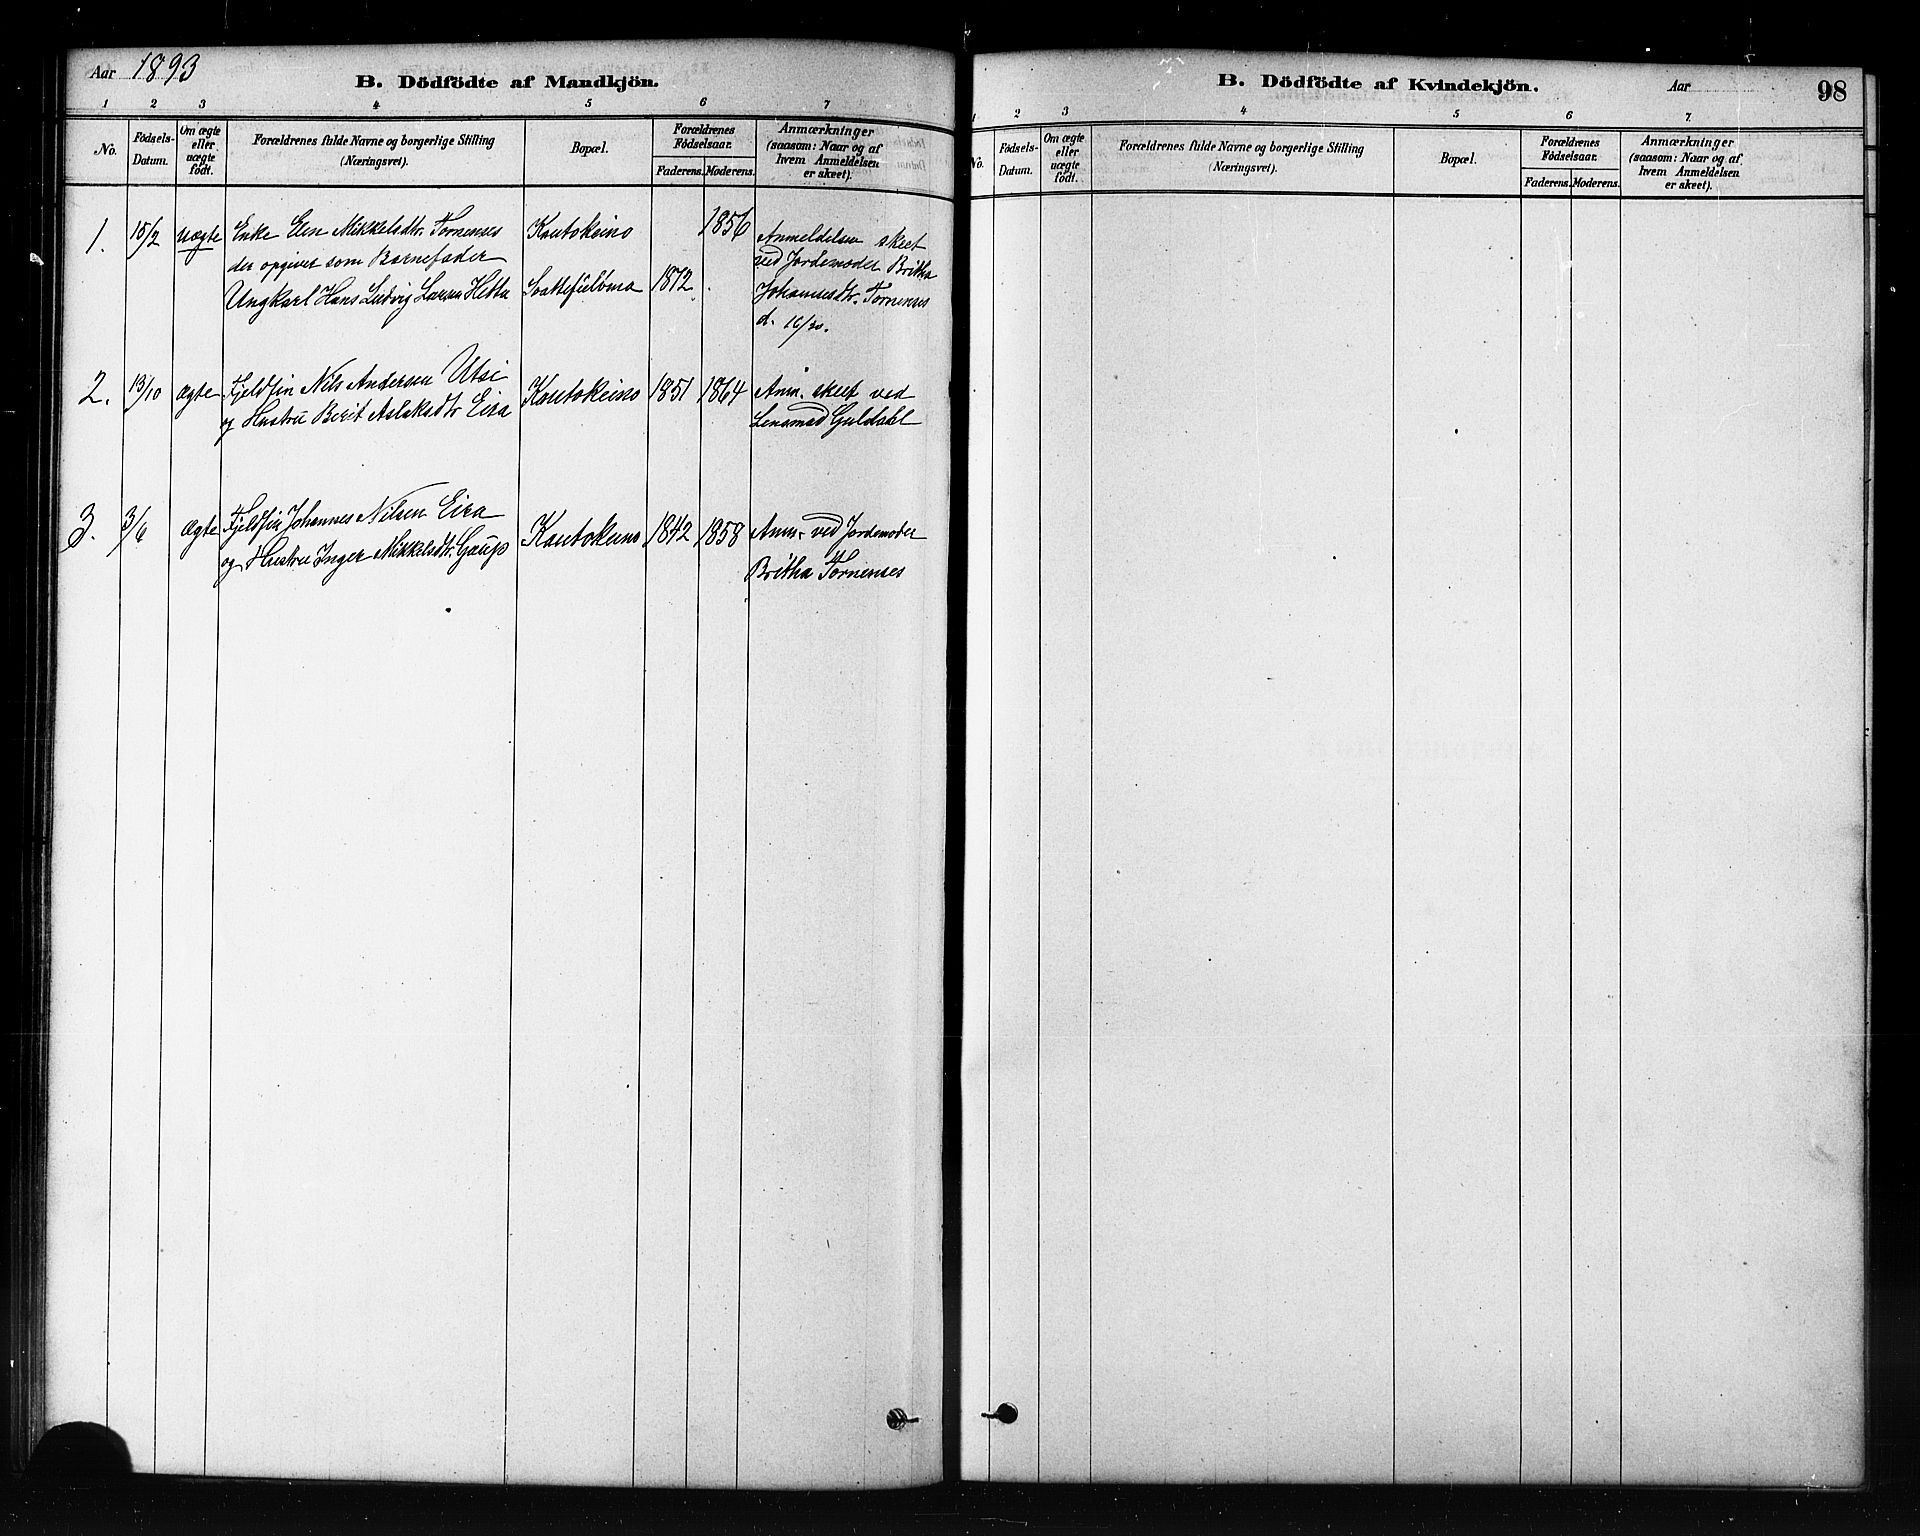 Aar 1893
B. Dödfödte af Mandkjön.
1 2 3 4 5 6 7
No.
Födsels-
Datum.
Om ægte
eller
uægte
födt.
Forældrenes fulde Navne og borgerlige Stilling
(Næringsvei).
Bopæl.
Forældrenes
Födselsaar.
Faderens. Moderens.
Anmærkninger
(saasom: Naar og af
hvem Anmeldelsen
er skeet).
1. 15/2 uægte Enke Elen Mikkelsdtr. Tornenses Kautokeino 1856 Anmeldelsen skeet
der opgiver som Barnefader ved Jordemoder Britha
Ungkarl Hans Ludvig Larsen Hetta 1872 Johannesdtr. Tornenses
d.
2. 13/10 ægte Fjeldfin Nils Andersen Utsi Kautokeino 1851 1864 Anm. skeet ved
og Hustru Berit Aslaksdtr Eira Lensmad Guldahl
3. 3/6 ægte Fjeldfin Johannes Nilsen Eira Kautokeino 1842 1858 Anm. ved Jordemoder
og Hustru Inger Mikkelsdtr. Gaup Britha Tornenses
B. Dödfödte af Kvindekjön. Aar 98
1 2 3 4 5 6 7
No.
Födsels-
Datum.
Om ægte
eller
uægte
födt.
Forældrenes fulde Navne og borgerlige Stilling
(Næringsvei).
Bopæl.
Forældrenes
Födselsaar.
Faderens. Moderens.
Anmærkninger
(saasom: Naar og af
hvem Anmeldelsen
er skeet).